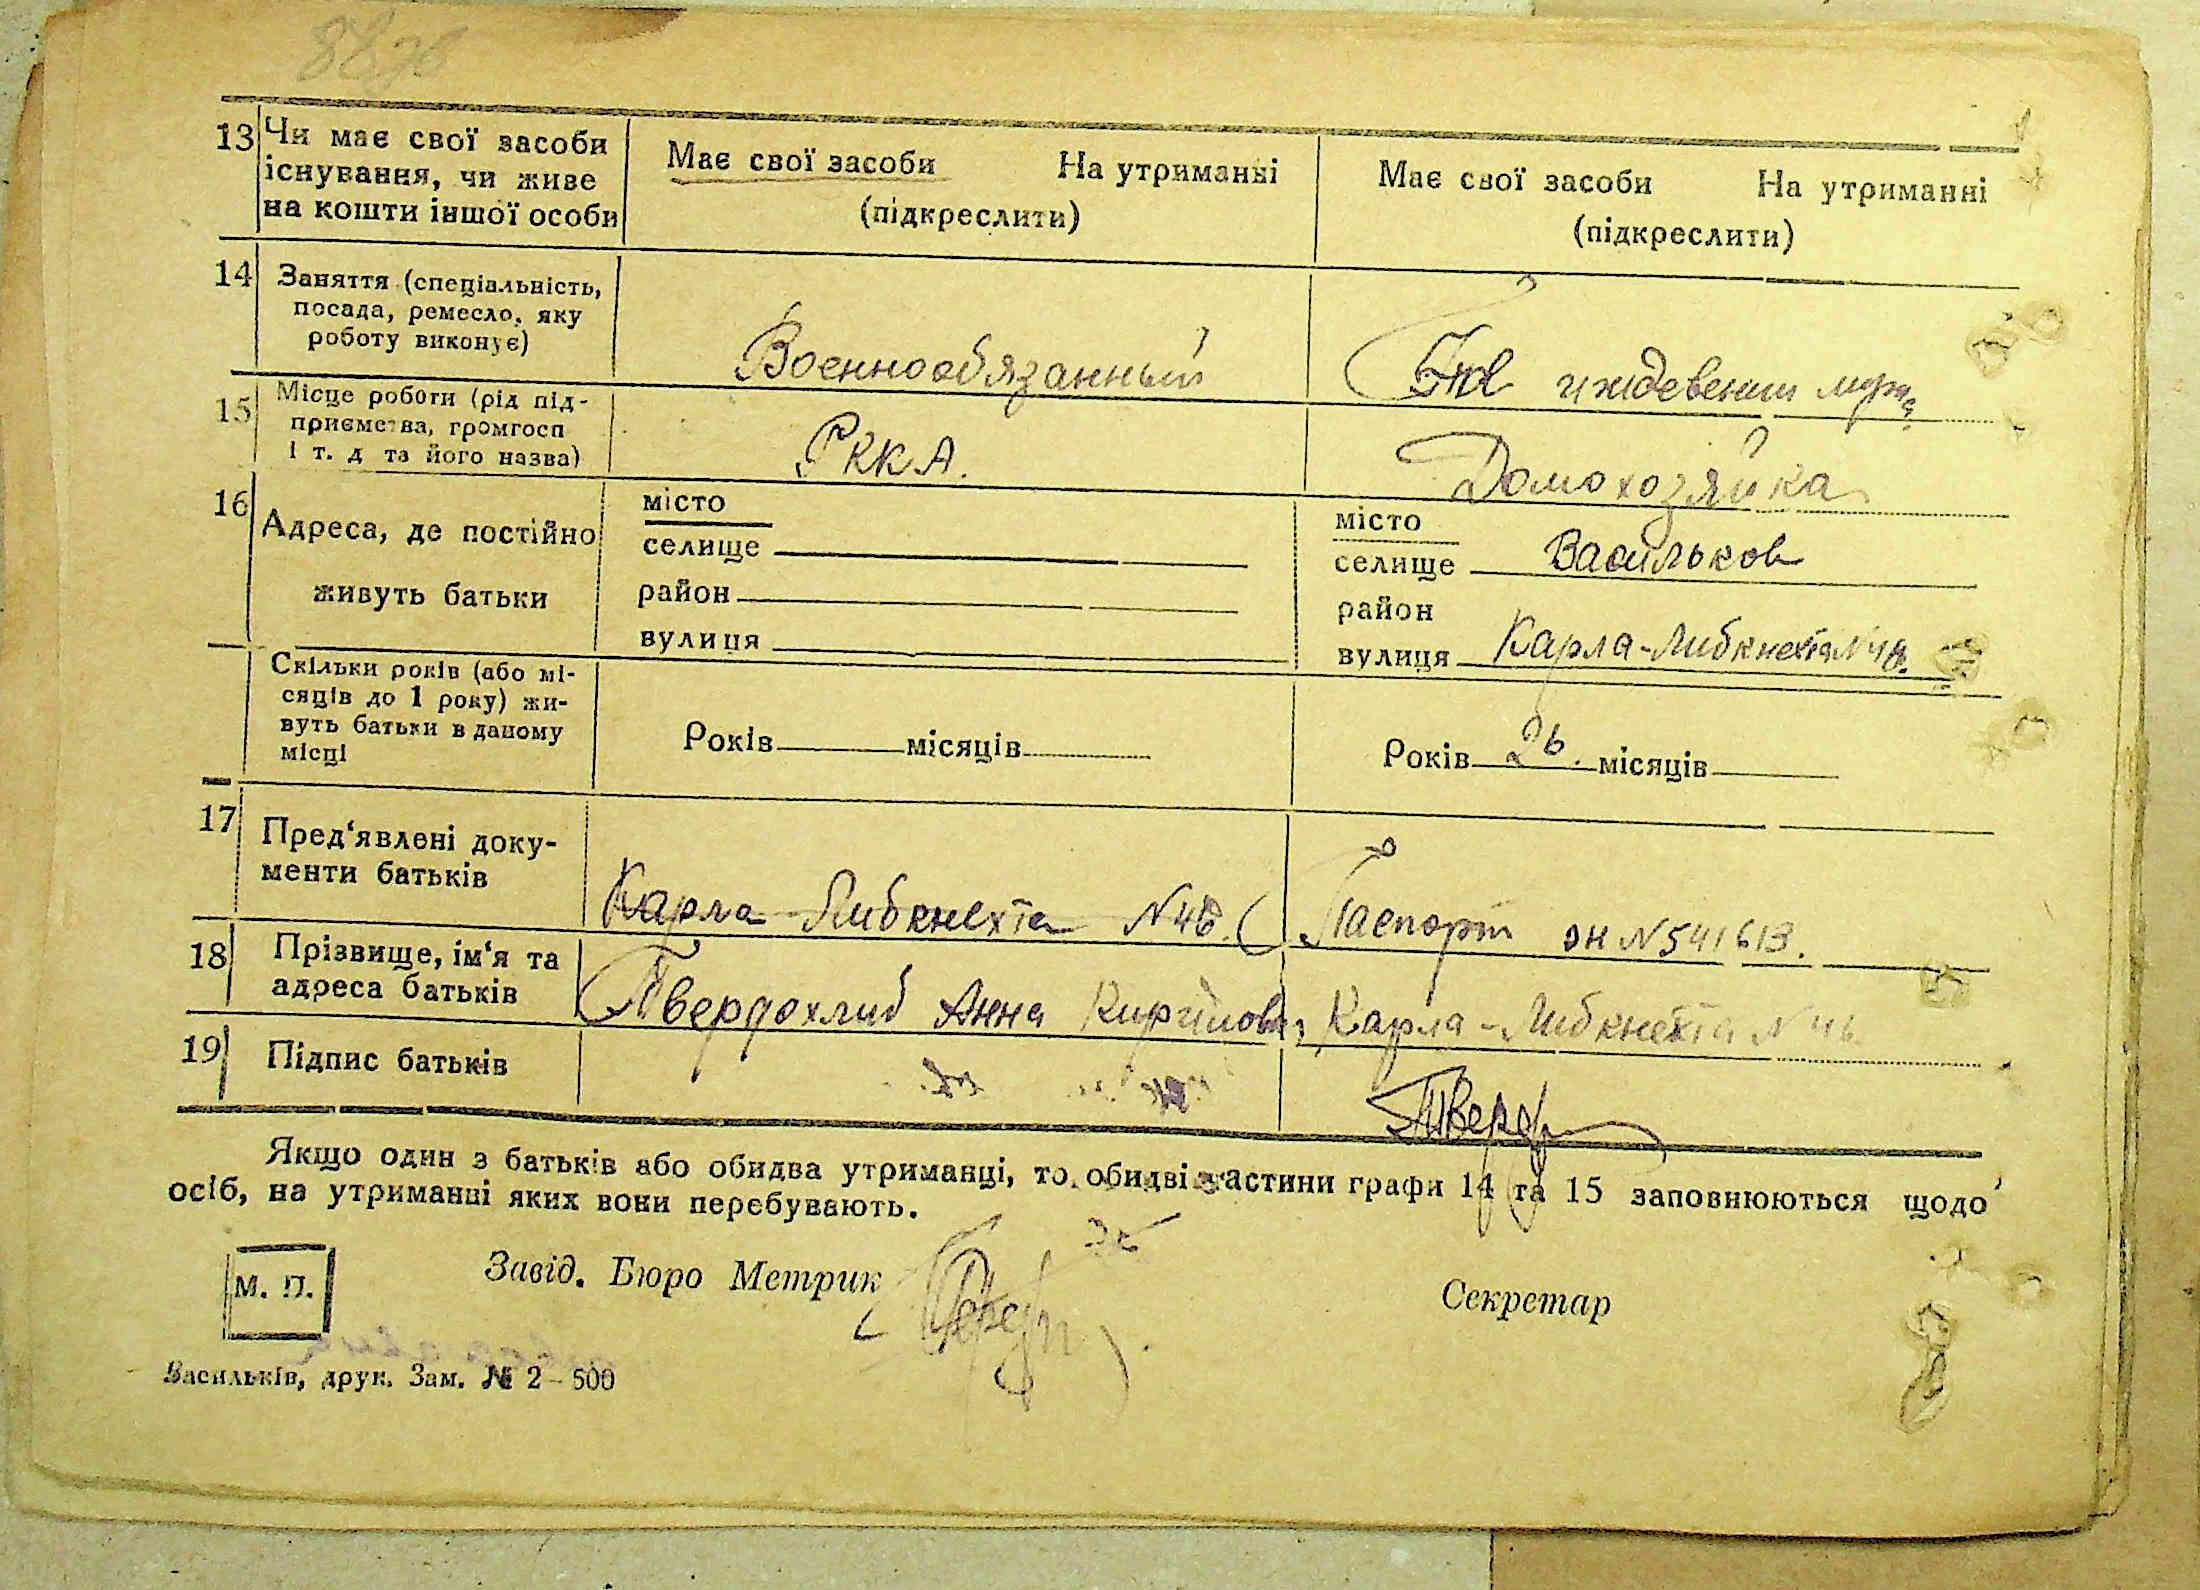 13 Чи має свої засоби існування, чи живе на кошти іншої особи
Має свої засоби На утриманні
(підкреслити)
Має свої засоби На утриманні
(підкреслити)
14 Заняття (спеціальність,
посада, ремесло, яку
роботу виконує)
Военнообязанный
На иждевении мужа
15 Місце роботи (рід під-
приємства, громгосп
і т. д та його назва)
РККА.
Домохозяйка
16 Адреса, де постійно
живуть батьки
місто
селище
район
вулиця
місто
селище Васильков
район
вулиця Карла-Либкнехта №46.
Скільки років (або мі-
сяців до 1 року) жи-
вуть батьки в даному
місці
Років місяців
Років 26. місяців
17 Пред‘явлені доку-
менти батьків
Карла-Либкнехта №46.
Паспорт эн №541613.
18 Прізвище, ім‘я та
адреса батьків
Твердохлиб Анна Карла-Либкнехта №46
19 Підпис батьків
Якщо один з батьків або обидва утриманці, то обидві частини графи 14 та 15 заповнюються щодо
осіб, на утриманні яких вони перебувають.
М. П.
Завід. Бюро Метрик
Секретар
Васильків, друк. Зам. № 2-500